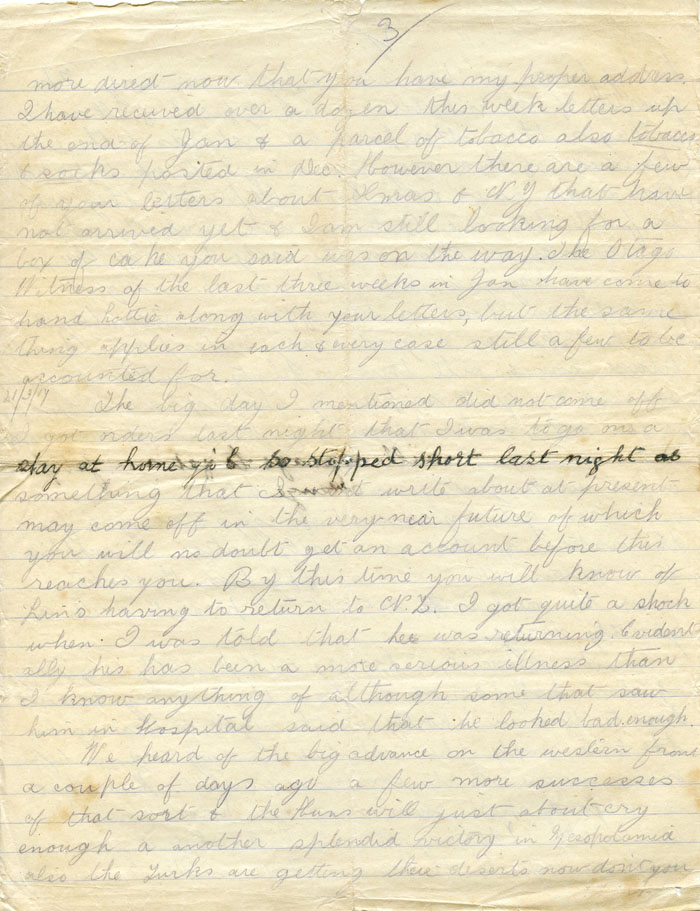 3/
more direct now that you have my proper address.
I have recieved over a dozen this week letters up
the end of Jan & a parcel of tobacco also tobacco
& socks posted in Dec. However there are a few
of your letters about Xmas & N.Y that have
not arrived yet & I am still looking for a
box of cake you said was on the way. The Otago
Witness of the last three weeks in Jan have come to
hand Lottie along with your letters, but the same
thing applies in each & every case still a few to be
accounted for.
21/3/17 The big day I mentioned did not come off
got orders last night that I was to go on a
stay at home job so stopped short last night as
something that I write about at present
may come off in the very near future of which
you will no doubt get an account before this
reaches you. By this time you will know of
Lin's having to return to N.Z. I got quite a shock
when I was told that he was returning. Evident
ally his has been a more serious illness than
I know anything of although some that saw
him in Hospital said that he looked bad enough.
We heard of the big advance on the western front
a couple of days ago a few more successes
of that sort & the Huns will just about cry
enough a another splendid victory in Mesopotamia
also the Turks are getting their deserts now don't you